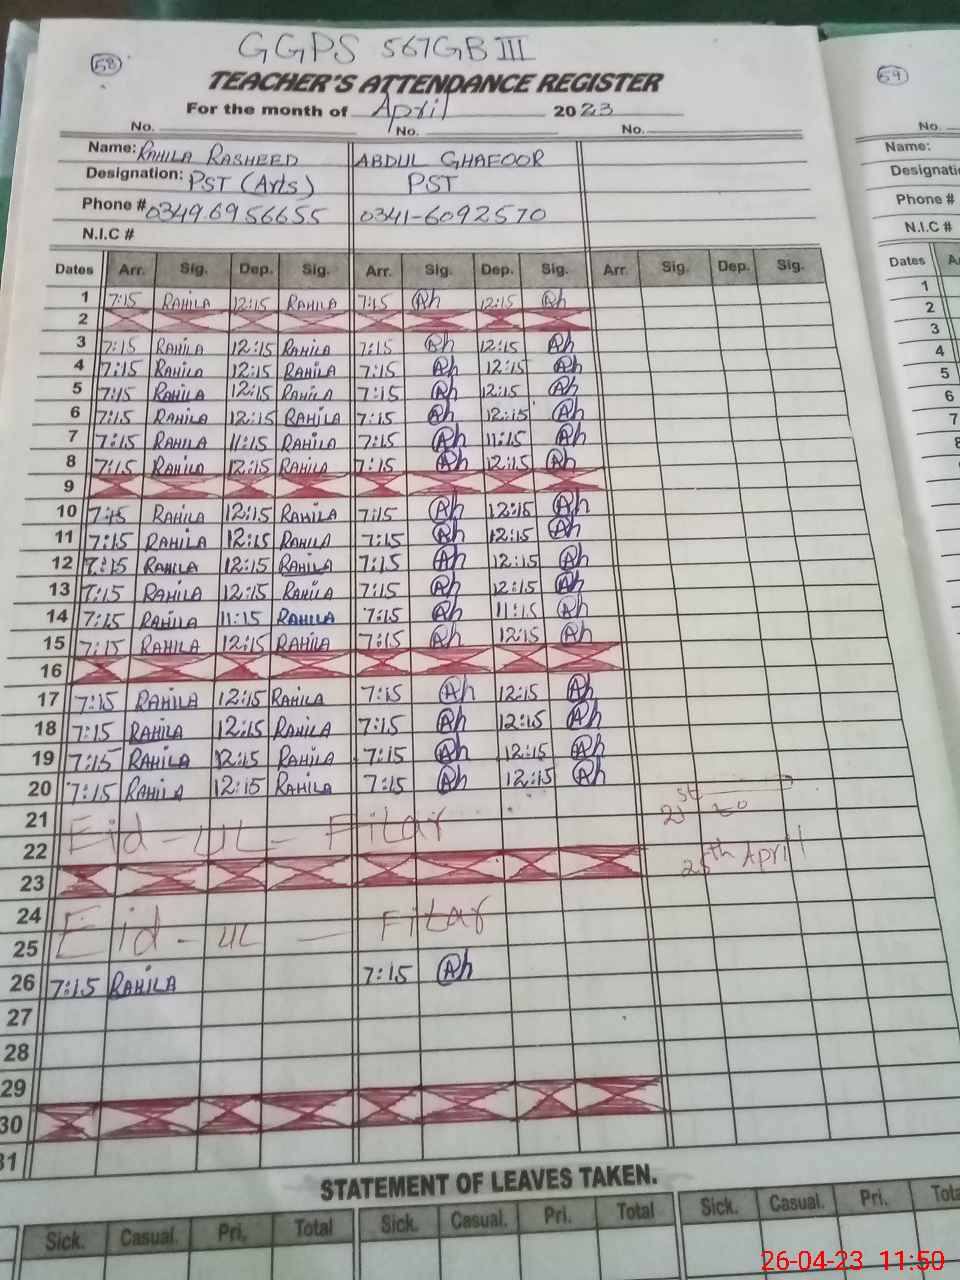 GGPS 567GB III
58
TEACHER'S ATTENDANCE REGISTER
For the month of April 2023
No. No. No.
Name: RAHILA RASHEED ABDUL GHAFOOR
Designation: PST (Arts) PST
Phone # 03496956655 0341-6092570
N.I.C #
Dates Arr. Sig. Dep. Sig. Arr. Sig. Dep. Sig. Arr. Sig. Dep. Sig.
1 7:15 RAHILA 12:15 RAHILA 7:15 Ah 12:15 Ah
2
3 7:15 RAHILA 12:15 RAHILA 7:15 Ah 12:15 Ah
4 7:15 RAHILA 12:15 RAHILA 7:15 Ah 12:15 Ah
5 7:15 RAHILA 12:15 RAHILA 7:15 Ah 12:15 Ah
6 7:15 RAHILA 12:15 RAHILA 7:15 Ah 12:15 Ah
7 7:15 RAHILA 11:15 RAHILA 7:15 Ah 11:15 Ah
8 7:15 RAHILA 12:15 RAHILA 7:15 Ah 12:15 Ah
9
10 7:15 RAHILA 12:15 RAHILA 7:15 Ah 12:15 Ah
11 7:15 RAHILA 12:15 RAHILA 7:15 Ah 12:15 Ah
12 7:15 RAHILA 12:15 RAHILA 7:15 Ah 12:15 Ah
13 7:15 RAHILA 12:15 RAHILA 7:15 Ah 12:15 Ah
14 7:15 RAHILA 11:15 RAHILA 7:15 Ah 11:15 Ah
15 7:15 RAHILA 12:15 RAHILA 7:15 Ah 12:15 Ah
16
17 7:15 RAHILA 12:15 RAHILA 7:15 Ah 12:15 Ah
18 7:15 RAHILA 12:15 RAHILA 7:15 Ah 12:15 Ah
19 7:15 RAHILA 12:15 RAHILA 7:15 Ah 12:15 Ah
20 7:15 RAHILA 12:15 RAHILA 7:15 Ah 12:15 Ah
21 Eid-UL-Fitar 21st
22 25th April
23
24 Eid-UL-Fitar
25
26 7:15 RAHILA 7:15 Ah
27
28
29
30
31
STATEMENT OF LEAVES TAKEN.
Sick. Casual. Pri. Total Sick. Casual. Pri. Total Sick. Casual. Pri. Tota
59
No.
Name:
Designati
Phone #
N.I.C #
Dates A
1
2
3
4
5
6
7
8
9
26-04-23 11:50